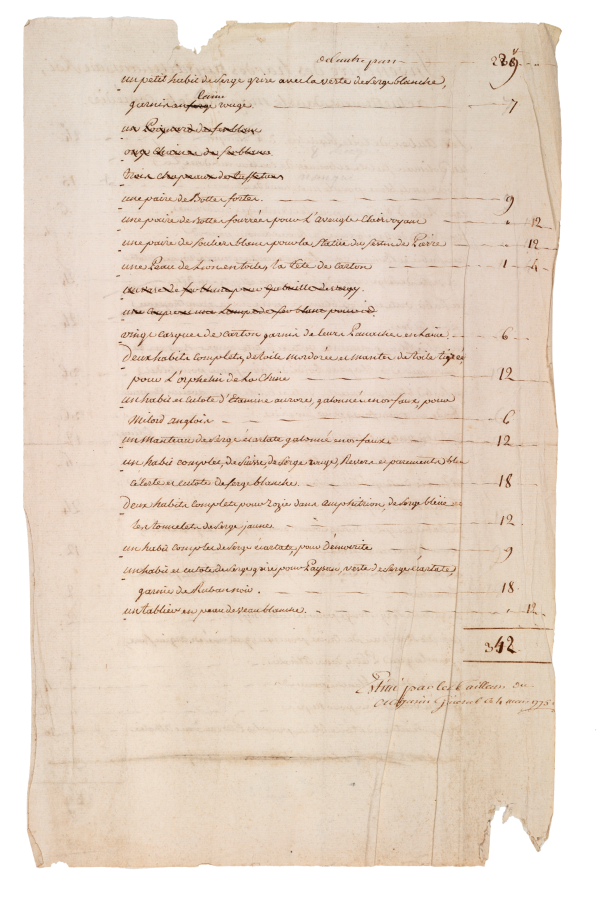 de l'autre part 229
un petit habit de Serge grise avec la veste de Serge blanche,
garnie en serge Cerise rouge 7
un Poignard de fer blanc
onze de fer blanc
Trois chapeaux de Taffetas
une paire de Botte fortes 9
une paire de Botte fourrée pour L'aveugle Clairvoyant " 12
une paire de Soulier blanc pour la Statüe du festin de Pierre " 12
une Peau de Lion en toile, la Tête de Carton 1 4
de fer blanc pour Gabrielle de vergy
une coupe et une Lampe de fer blanc
vingt casques de Carton garnis de leurs Panaches en Laine 6
Deux habits complets, de toile mordorée et mante de toile tigrée,
pour L'orphelin de La Chine 12
un habit et culote d'Etamine aurore, galonné en or faux, pour
Milord anglois 6
un Manteau de Serge écarlate, galonné en or faux 12
un habit complet, de Suisse, de Serge rouge, Revers et parements bleu
celeste et culote de Serge blanche 18
Deux habits complets pour Sozie dans amphitrion, de Serge bleüe et
les Tonnelets de Serge jaune 12
un habit complet de Serge écarlate, pour Démocrite 9
un habit et culote de Serge grise pour Paysan, veste de Serge écarlate,
garnie de Ruban noir 18
un tablier en peau de veau blanche " 12
342
Estimé par le tailleur du
ce 4